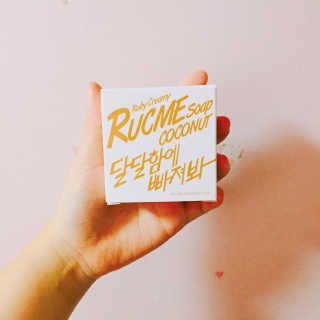 Ruby Creamy
RUCME Soap
COCONUT
달달함에
빠져봐